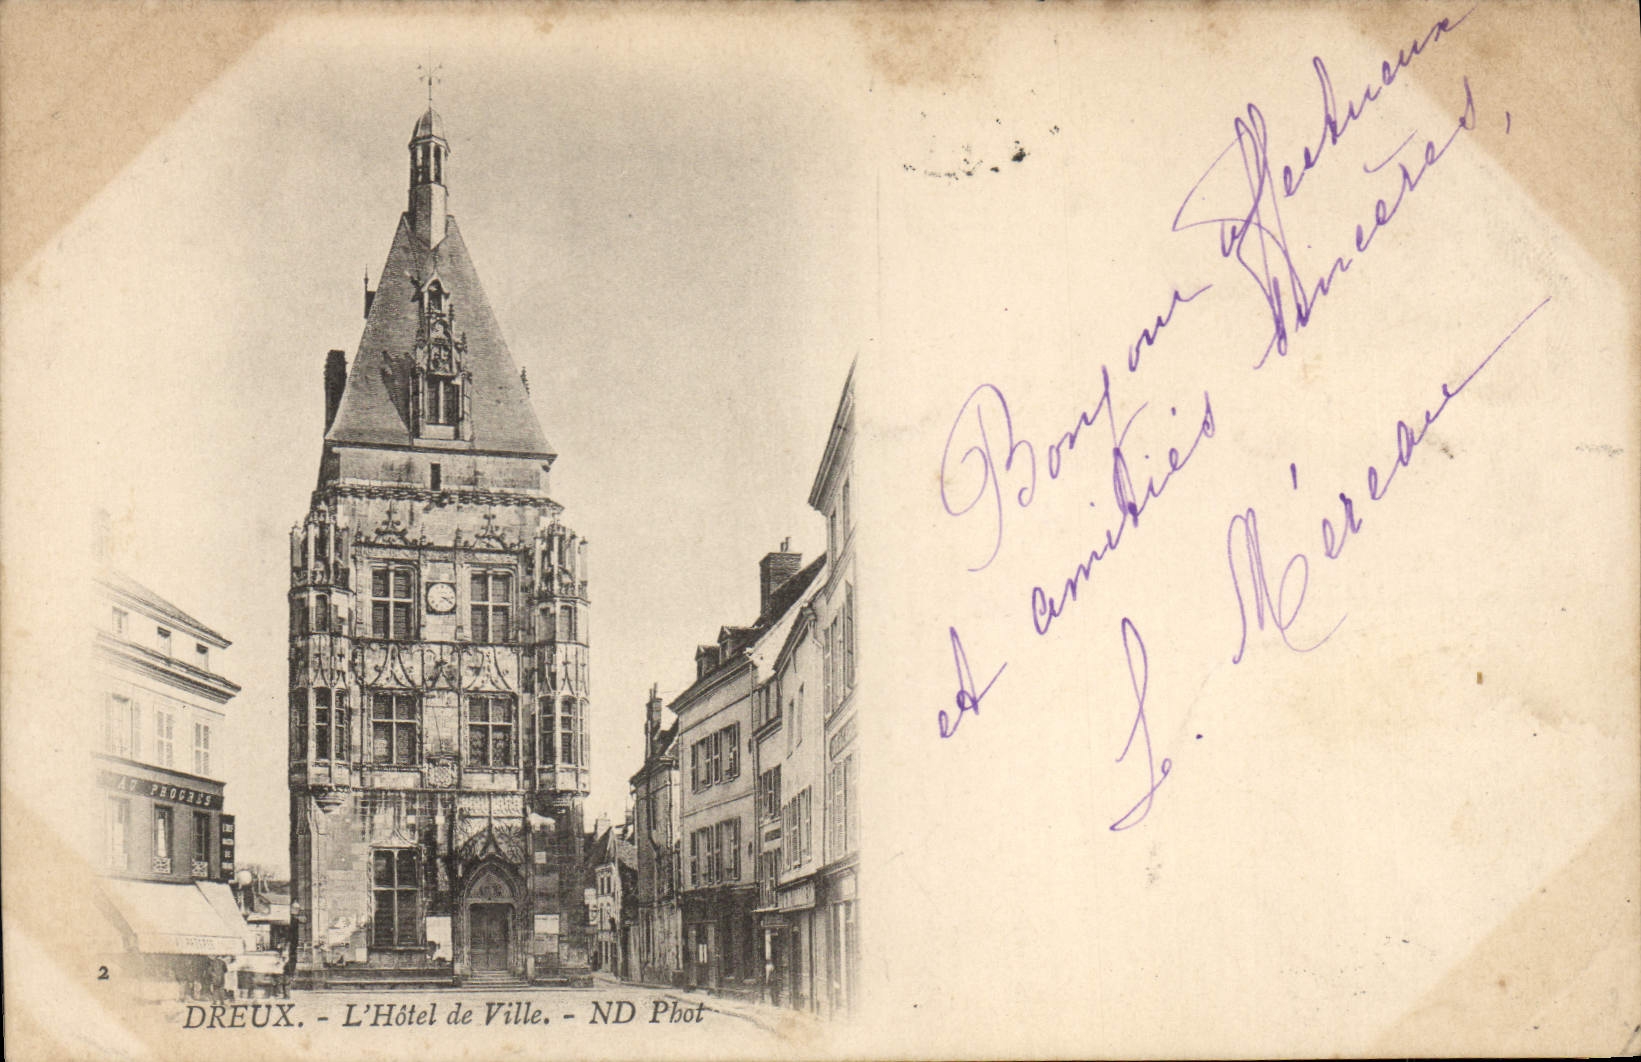 AU PROGRES
2
DREUX. - L'Hôtel de Ville. - ND Phot
Bonjour affectueux
et amitiés sincères,
L. Méreau